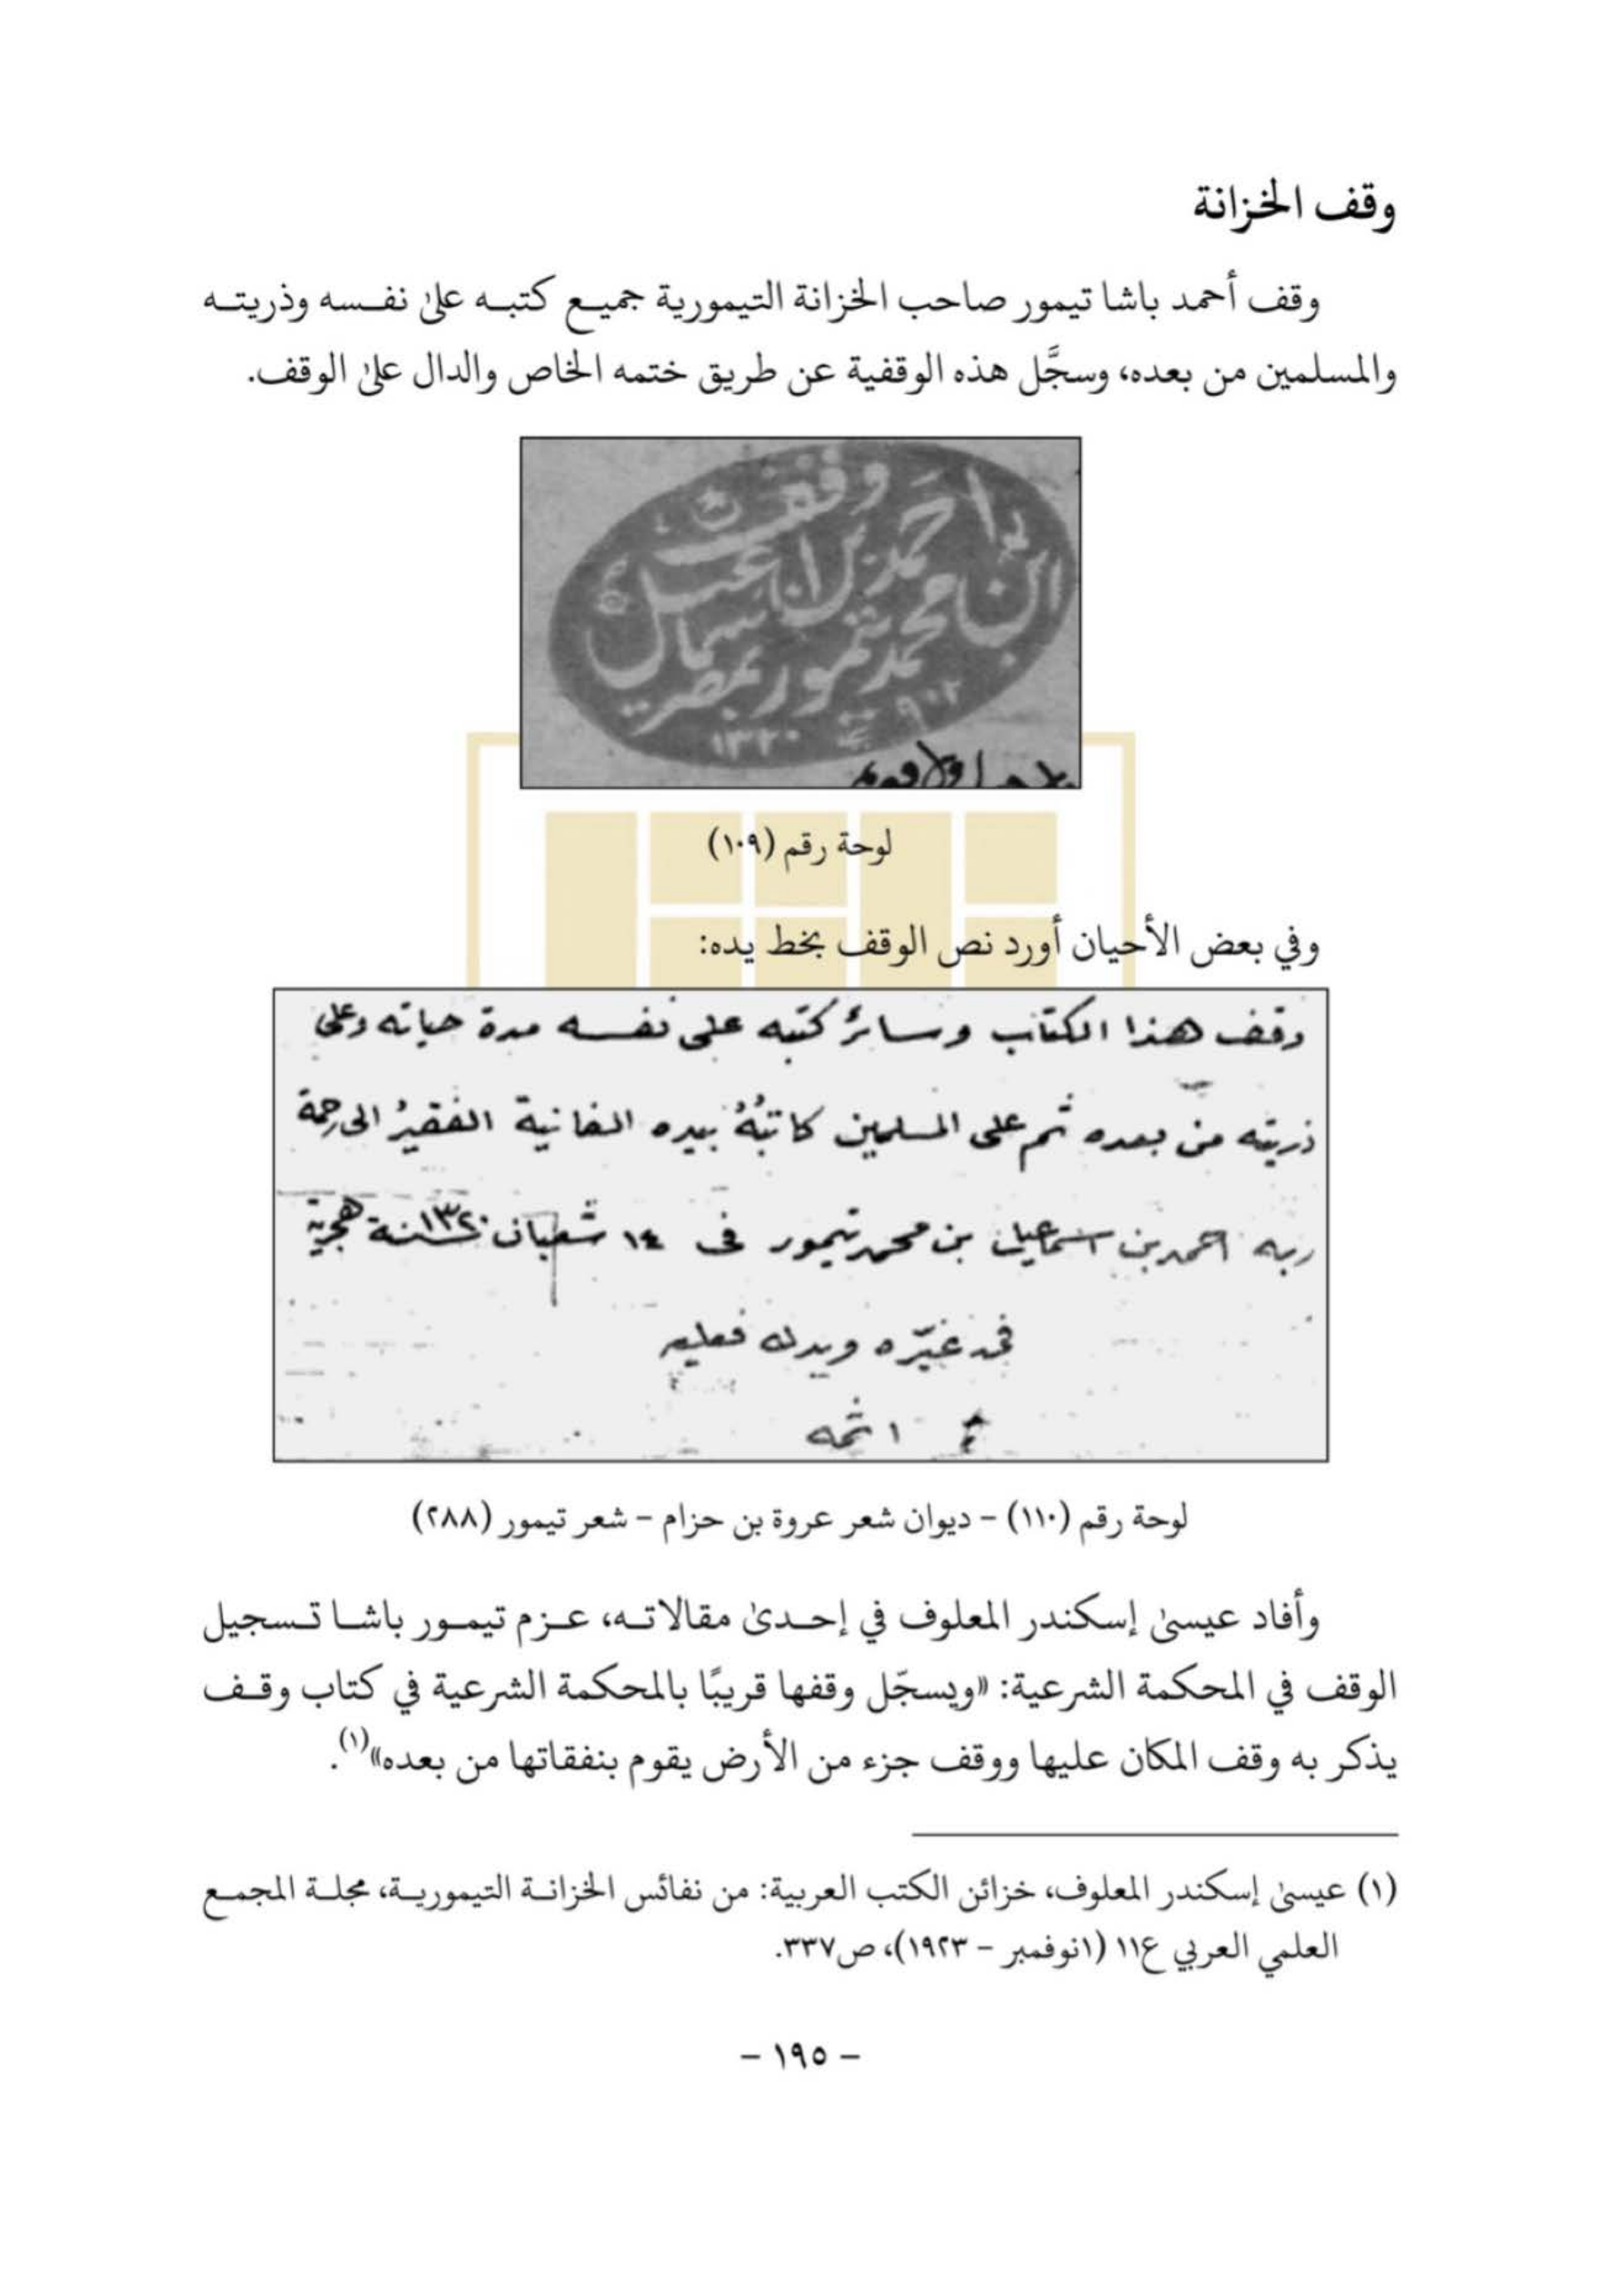 وقف الخزانة
وقف أحمد باشا تيمور صاحب الخزانة التيمورية جميع كتبه علىٰ نفسه وذريته
والمسلمين من بعده، وسجَّل هذه الوقفية عن طريق ختمه الخاص والدال علىٰ الوقف.
وقف
احمد بن
ابن محمد تيمور بمصر
١٣٢٠ سنة
لوحة رقم (١٠٩)
وفي بعض الأحيان أورد نص الوقف بخط يده:
وقف هذا الكتاب وسائر كتبه على نفسه مدة حياته وعلى
ذريته من بعده ثم على المسلمين كاتبُهُ بيده الفانية الفقيرُ الى رحمة
ربه احمد بن اسماعيل بن محمد تيمور فى ١٤ شعبان سنة ١٣٢٠ هجرية
فمن غيّره وبدله فعليه
اثمه
لوحة رقم (١١٠) – ديوان شعر عروة بن حزام – شعر تيمور (٢٨٨)
وأفاد عيسىٰ إسكندر المعلوف في إحدىٰ مقالاته، عزم تيمور باشا تسجيل
الوقف في المحكمة الشرعية: «ويسجّل وقفها قريبًا بالمحكمة الشرعية في كتاب وقف
يذكر به وقف المكان عليها ووقف جزء من الأرض يقوم بنفقاتها من بعده»(١).
(١) عيسىٰ إسكندر المعلوف، خزائن الكتب العربية: من نفائس الخزانة التيمورية، مجلة المجمع
العلمي العربي ع١١ (١نوفمبر – ١٩٢٣)، ص٣٣٧.
– ١٩٥ –